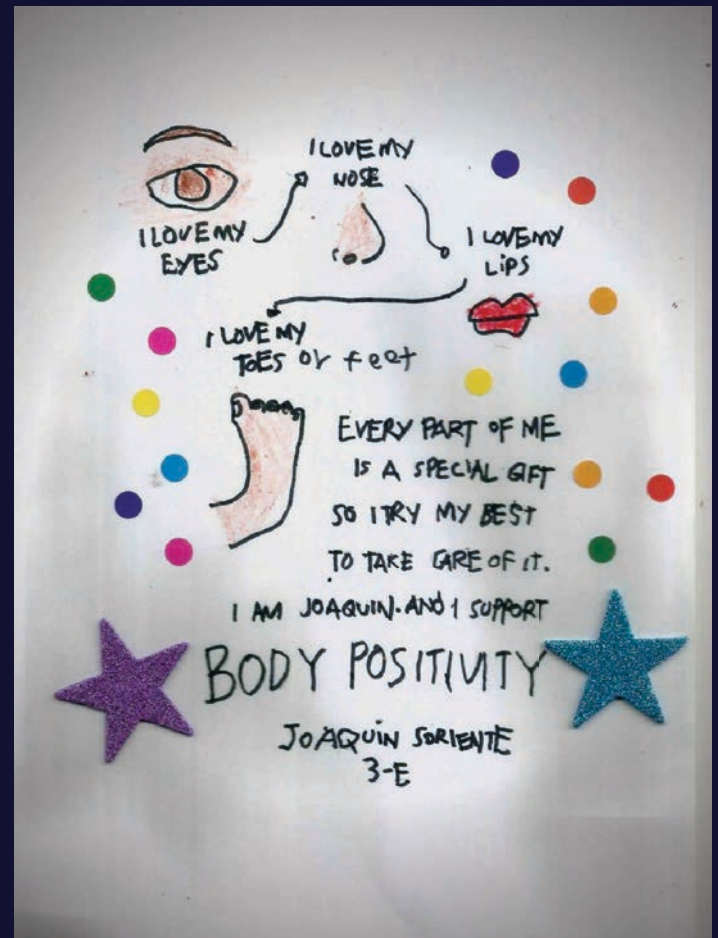 I LOVE MY
EYES
I LOVE MY
NOSE
I LOVE MY
LiPS
I LOVE MY
TOES or feet
EVERY PART OF ME
IS A SPECIAL GIFT
SO I TRY MY BEST
TO TAKE CARE OF IT.
I AM JOAQUIN. AND I SUPPORT
BODY POSITIVITY
JOAQUiN SORIENTE
3-E